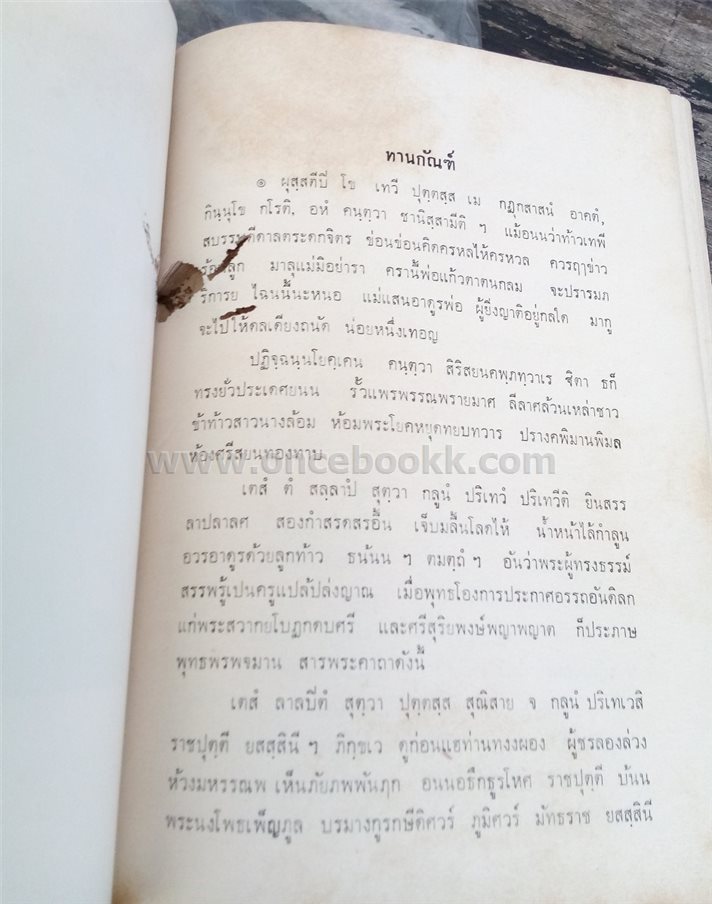 ทานกัณฑ์
๑ ผุสฺสตีปิ โข เทวี ปุตฺตสฺส เม กฏุกสาสนํ อาคตํ,
กินฺนุโข กโรติ, อหํ คนฺตฺวา ชานิสฺสามีติ ๆ แม้อนนว่าท้าวเทพี
สบรรษดีดาลตระดกจิตร ข่อนข่อนคิดครหลไห้ครหวล ควรฤๅข่าว
ร้อนลูก มาลุแม่มิอย่ารา ครานี้พ่อแก้วตาตนกลม จะปรารมภ
ริการย ไฉนนี้นะหนอ แม่แสนอาดูรพ่อ ผู้ยิ่งญาติอยู่กลใด มากู
จะไปให้ดลเดียงถนัด น่อยหนึ่งเทอญ
ปฏิจฺฉนฺนโยคฺเคน คนฺตฺวา สิริสยนคพฺภทฺวาเร ฐิตา ธก็
ทรงยั่วประเดศยนน รั้วแพรพรรณพรายมาศ ลีลาศล้วนเหล่าชาว
ข้าท้าวสาวนางล้อม ห้อมพระโยคหยุดทยบทวาร ปรางคพิมานพิมล
ห้องศรีสยนทองทาบ
www.oncebookk.com
เตสํ ตํ สลฺลาปํ สุตฺวา กลูนํ ปริเทวํ ปริเทวีติ ยินสรร
ลาปลาลศ สองกำสรดสรอื้น เจ็บมลื้นโลดไห้ น้ำหน้าไล้กำลูน
อวรอาดูรด้วยลูกท้าว ธน้นน ๆ ตมตฺถํ ๆ อันว่าพระผู้ทรงธรรม์
สรรพรู้เปนครูแปลปล่งญาณ เมื่อพุทธโองการประกาศอรรถอันดิลก
แก่พระสวากยโบฎกตบศรี และศรีสุริยพงษ์พญาพญาต ก็ประภาษ
พุทธพรพจมาน สารพระคาถาดังนี้
เตสํ ลาลปิตํ สุตฺวา ปุตฺตสฺส สุณิสาย จ กลูนํ ปริเทเวสิ
ราชปุตฺตี ยสสฺสินี ๆ ภิกฺขเว ดูก่อนแฮท่านทงงผอง ผู้ชรลองล่วง
ห้วงมหรรณพ เห็นภัยภพพันภฦก อนนอธึกธูรโหศ ราชปุตฺตี บ้นน
พระนงโพธเพ็ญภูล บรมางกูรกษีดิศวร์ ภูมิศวร์ มัทธราช ยสสฺสินี